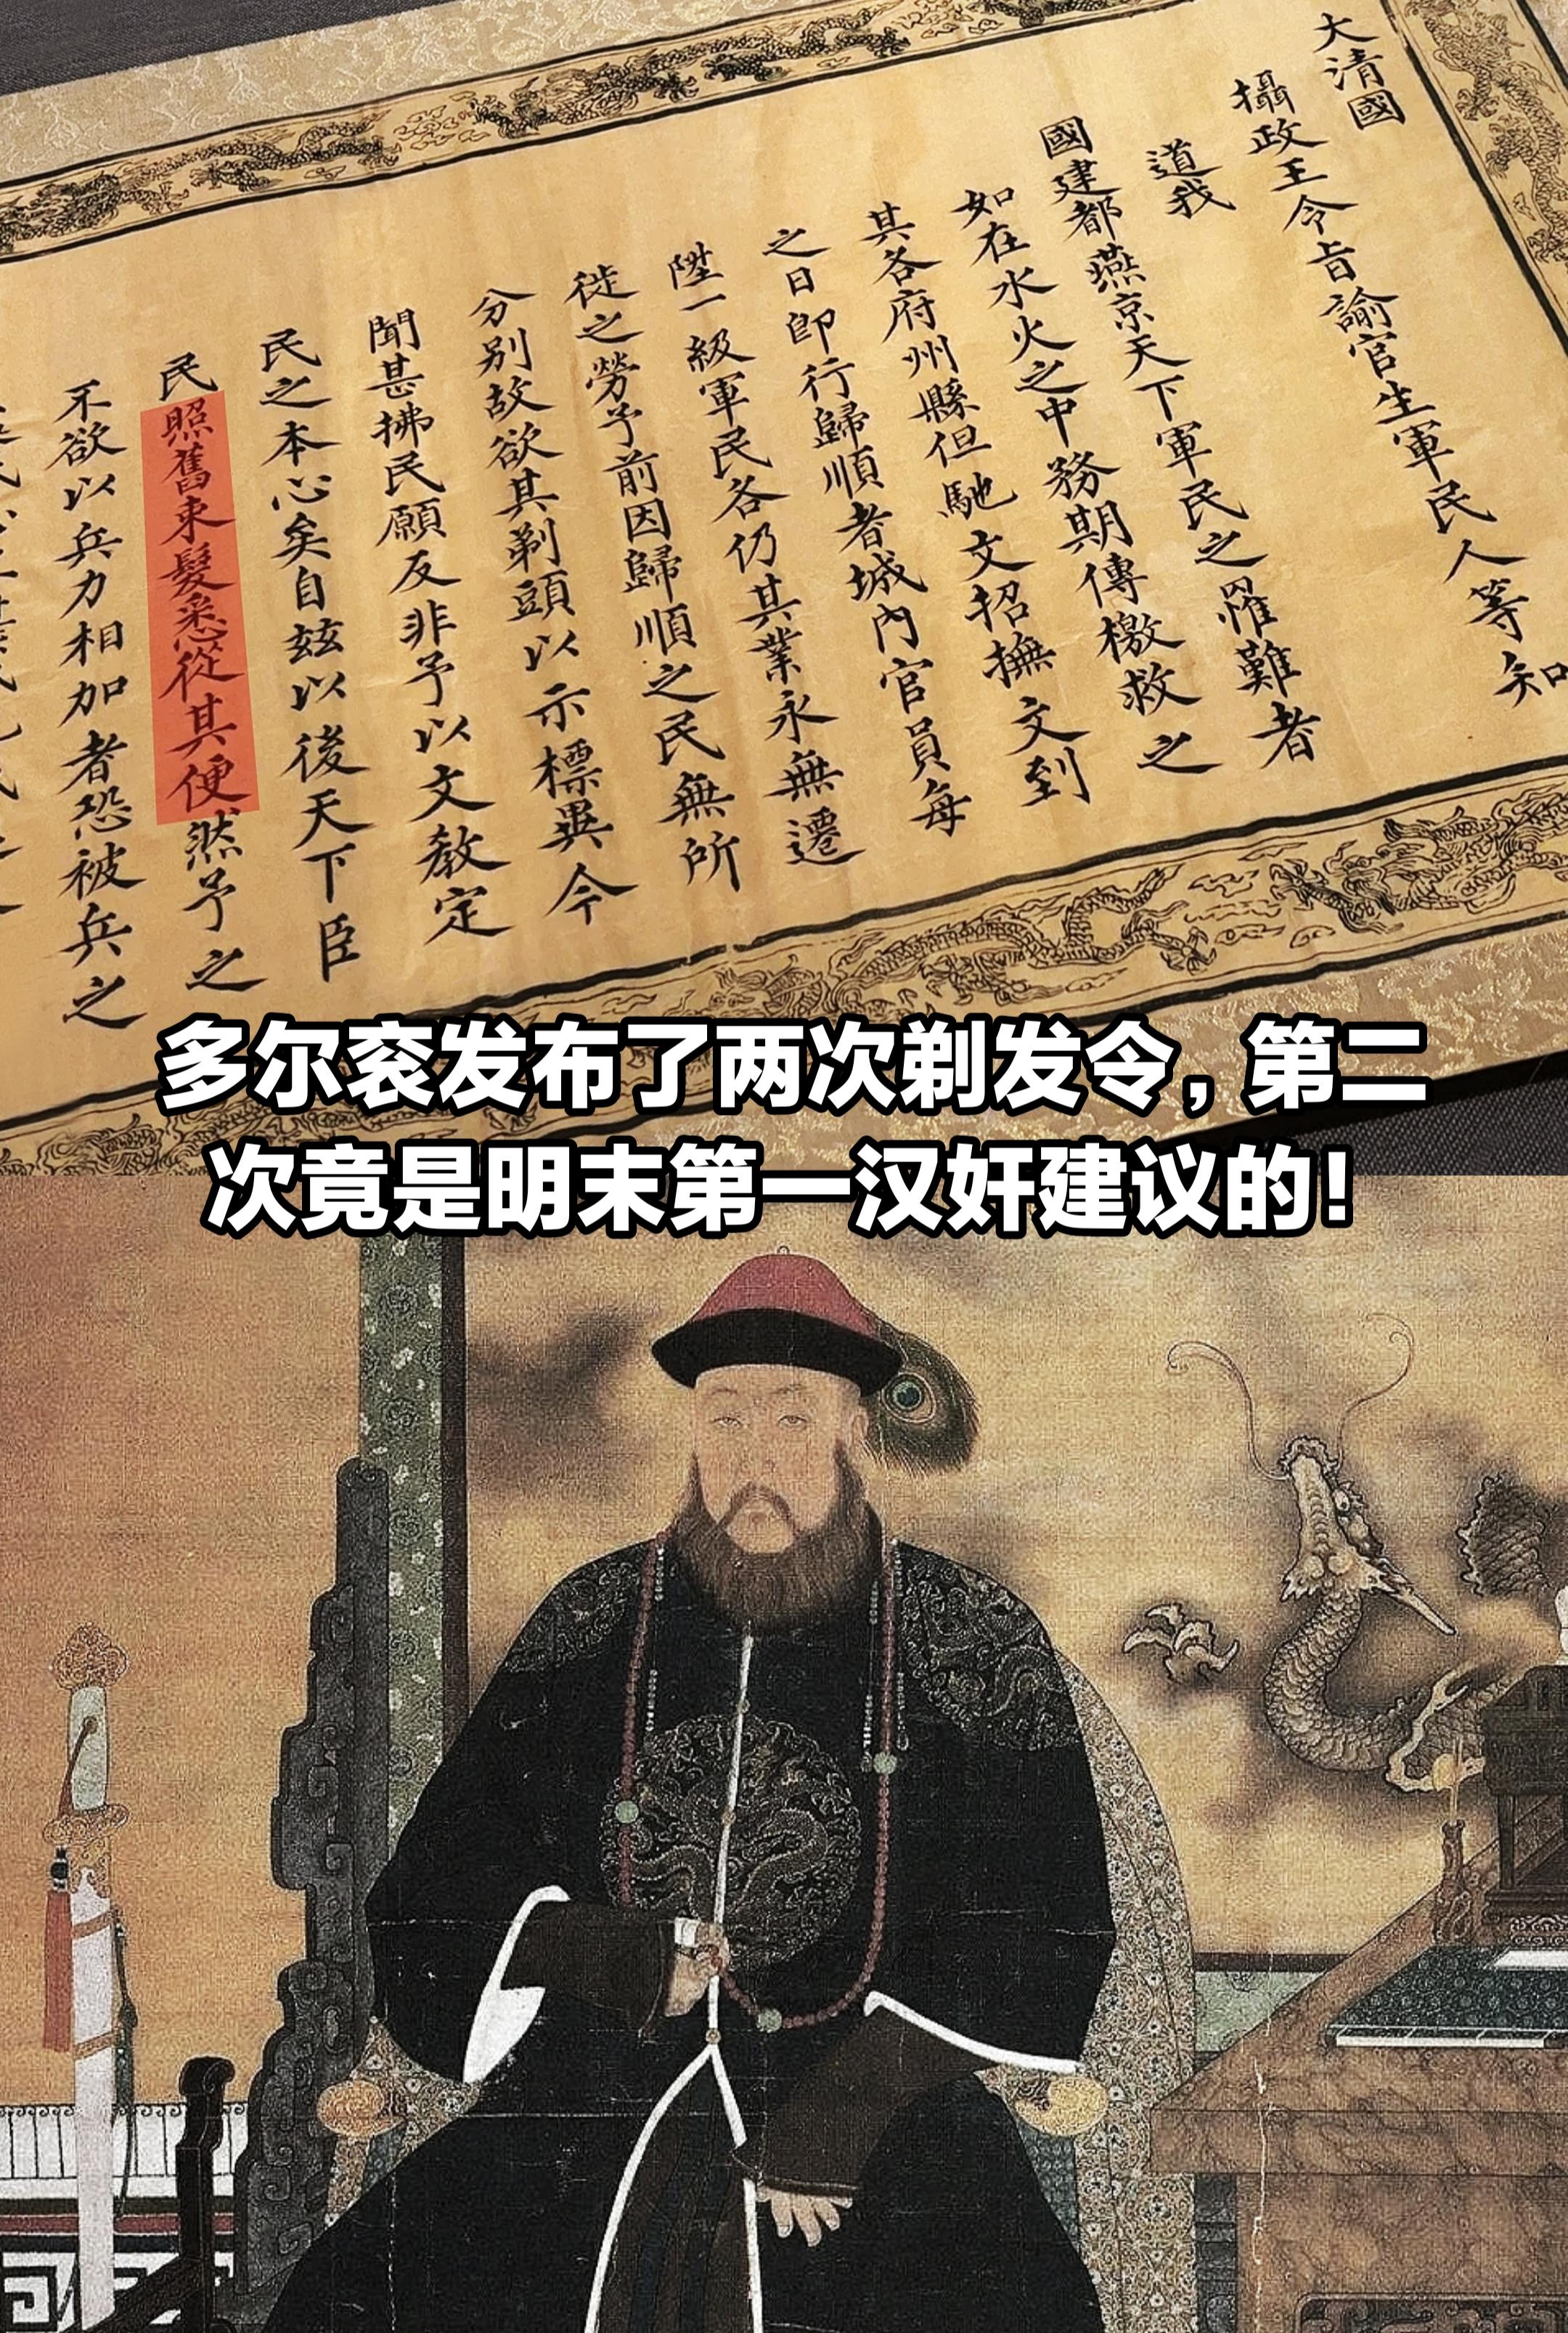 大清國
攝政王令旨諭官生軍民人等知
道我
國建都燕京天下軍民之罹難者
如在水火之中務期傳檄救之
其各府州縣但馳文招撫文到
之日即行歸順者城內官員每
陞一級軍民各仍其業永無遷
徙之勞予前因歸順之民無所
分別故欲其剃頭以示標異今
聞甚拂民願反非予以文教定
民之本心矣自玆以後天下臣
民照舊束髮悉從其便然予之
不欲以兵力相加者恐被兵之
多尔衮发布了两次剃发令，第二
次竟是明末第一汉奸建议的！